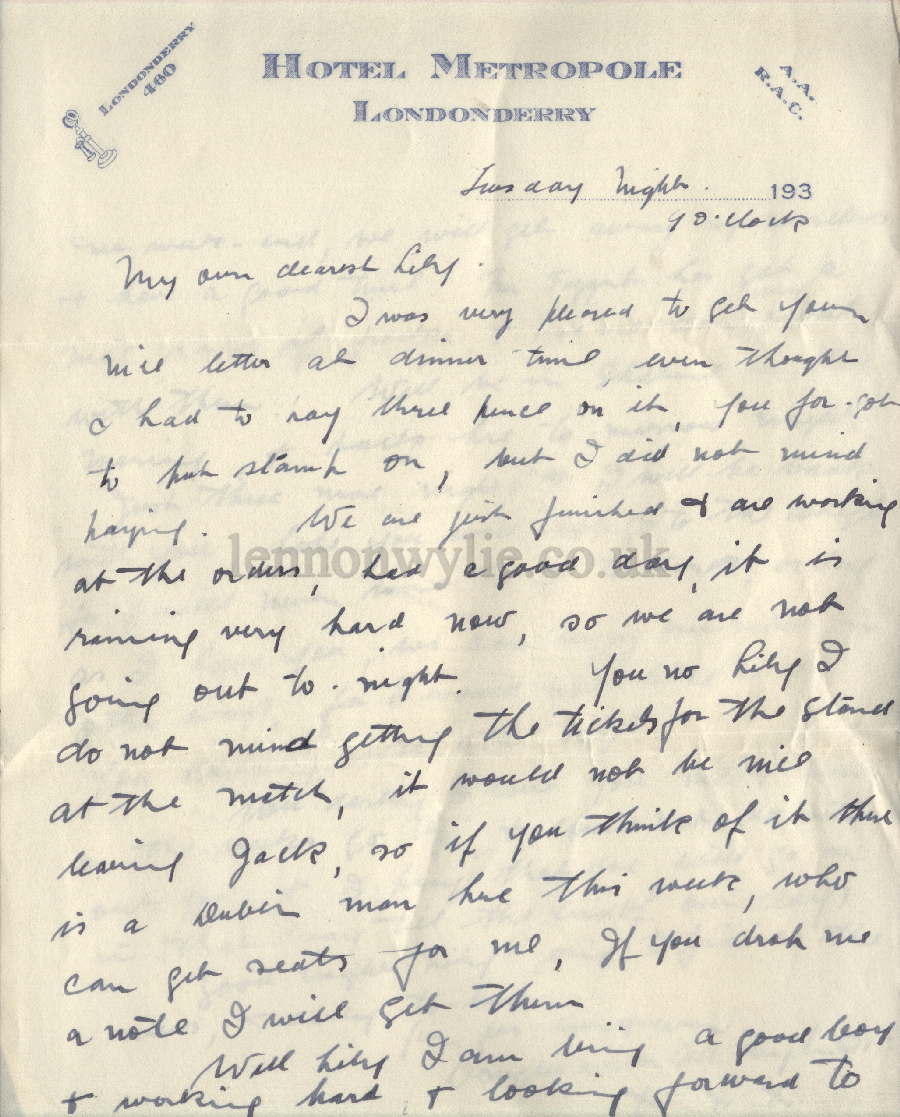 LONDONDERRY
460
HOTEL METROPOLE
LONDONDERRY
A.A.
R.A.C.
Tuesday Night. 193
9 O'clock
My own dearest Lily.
I was very pleased to get your
nice letter at dinner time, even thought
I had to pay three pence on it, you for-got
to put stamp on, but I did not mind
paying. We are just finished + are working
at the orders, had a good day, it is
raining very hard now, so we are not
going out to-night. You no Lily I
do not mind getting the tickets for the stand
at the match, it would not be nice
leaving Jack, so if you think of it there
is a Dublin man here this week, who
can get seats for me, If you drop me
a note I will get them
Well Lily I am being a good boy
+ working hard + looking forward to
lennonwylie.co.uk